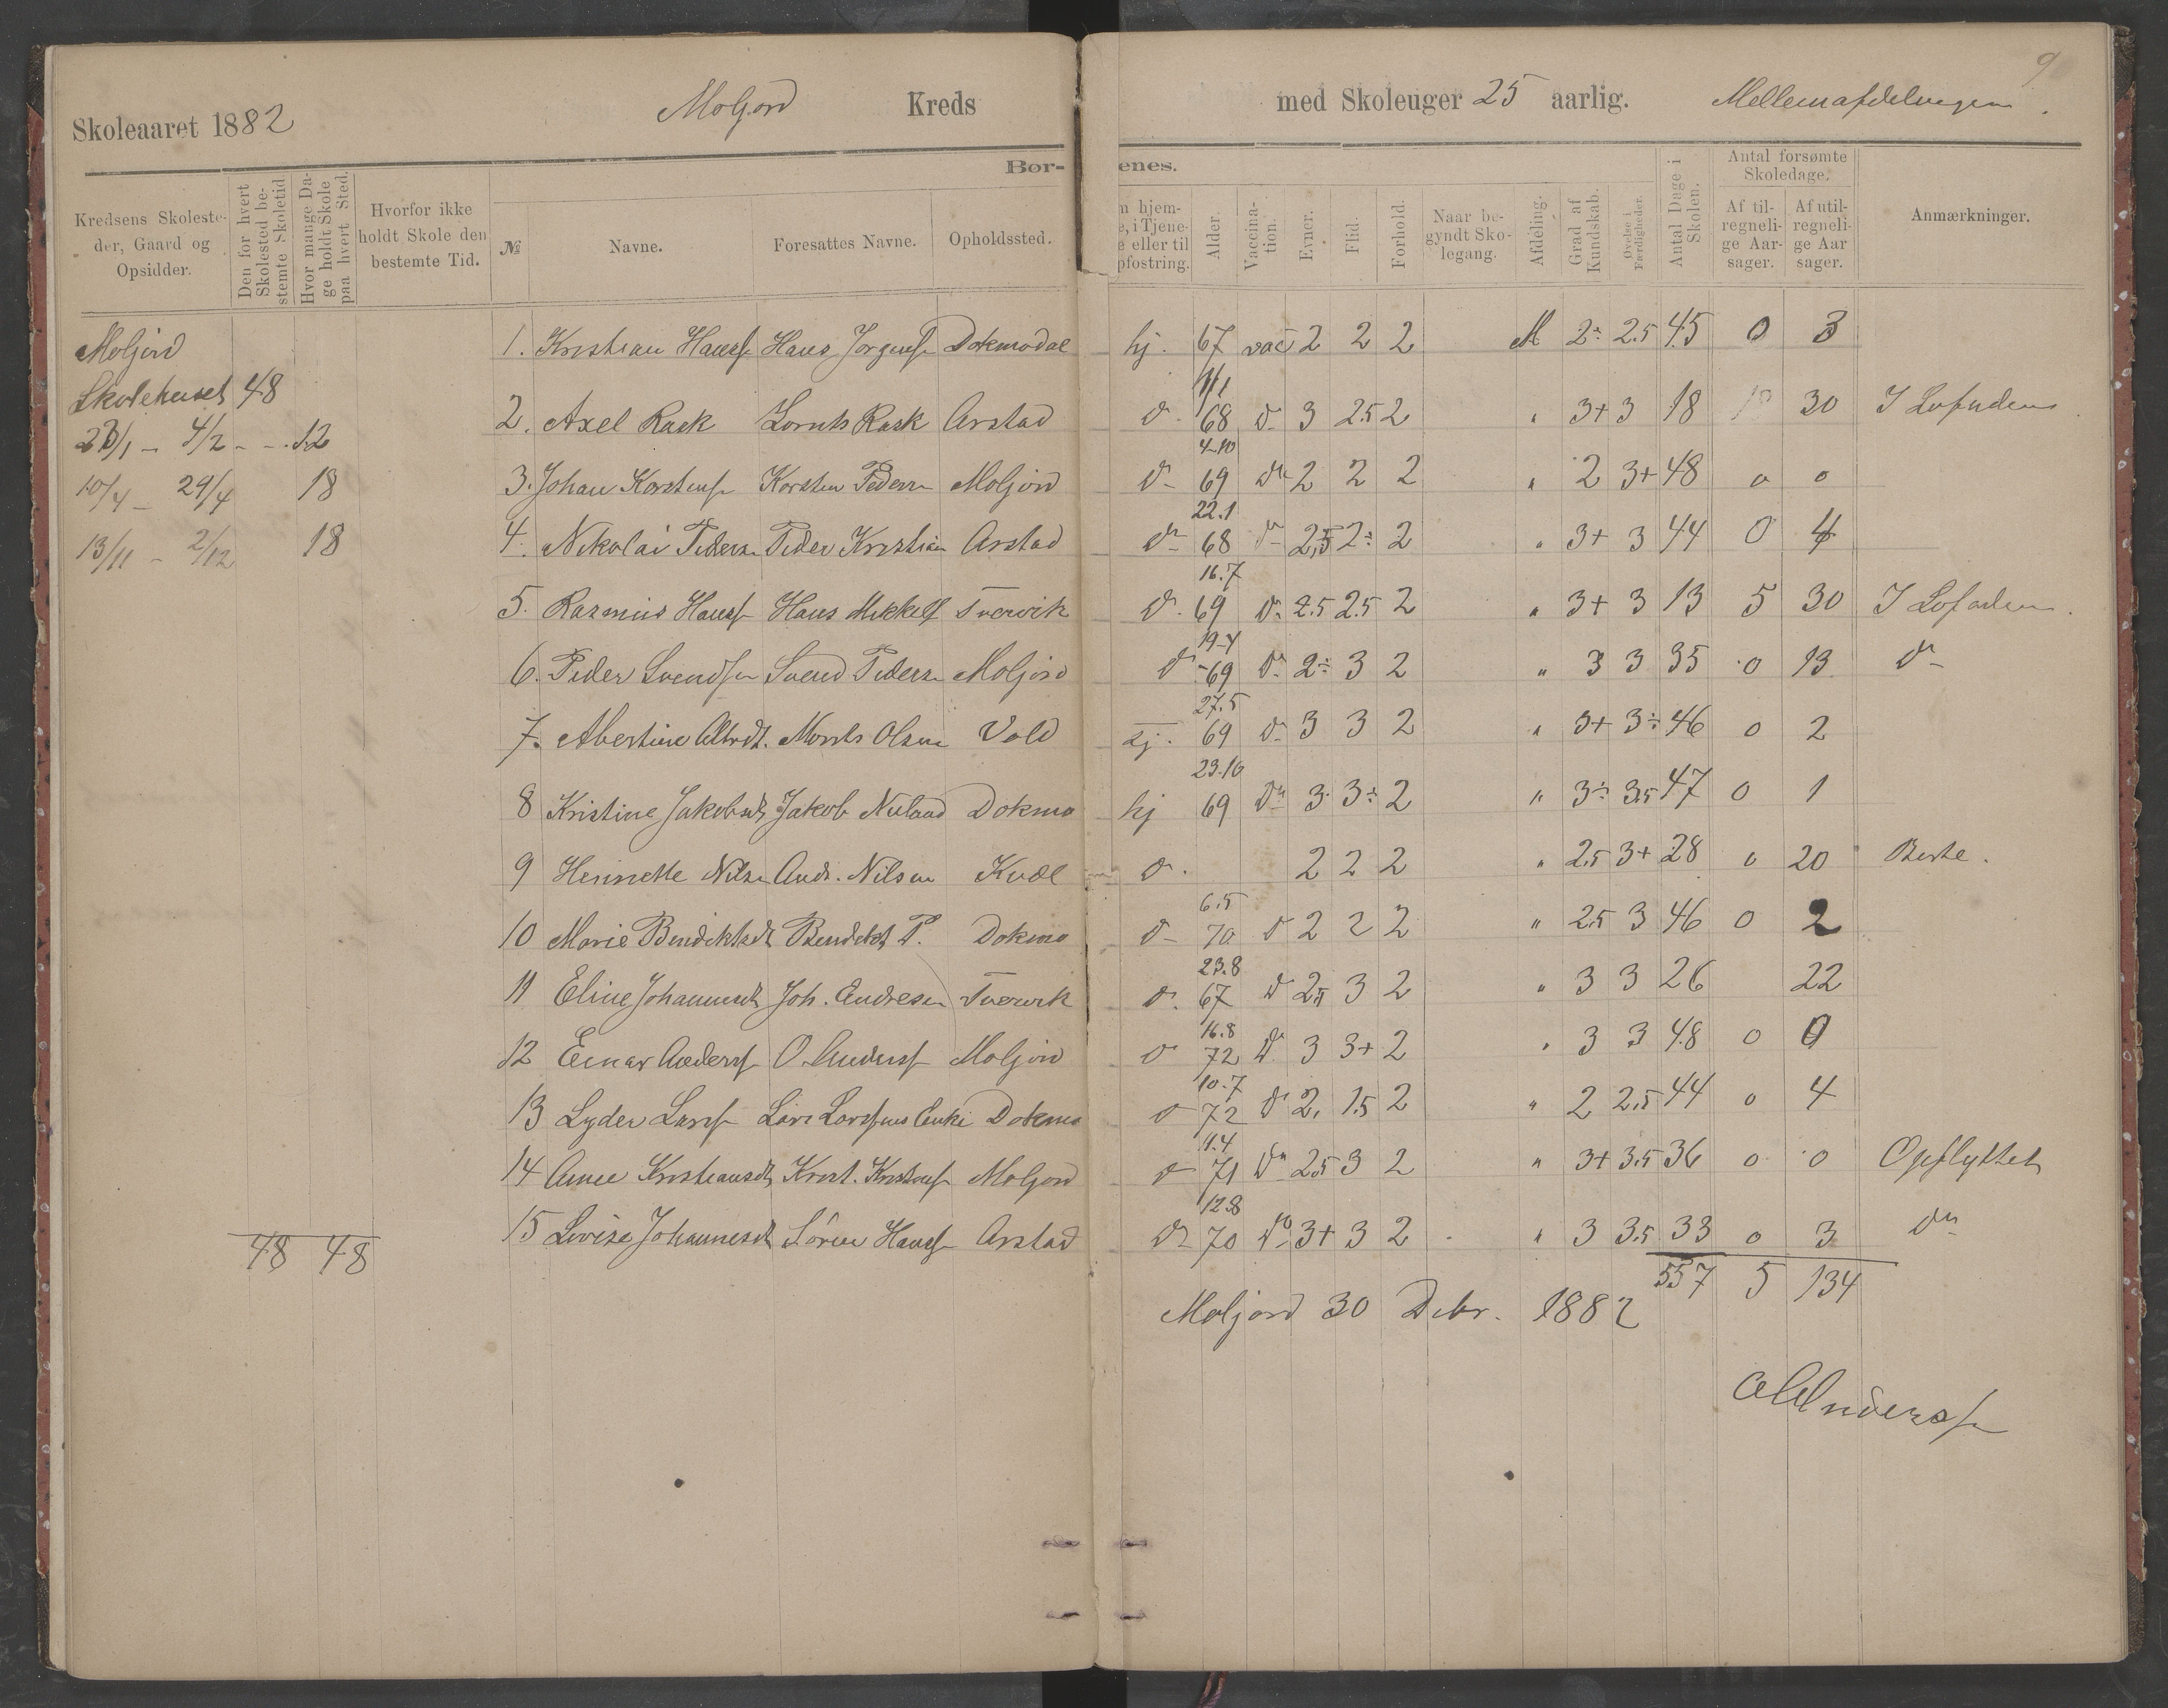 9
Skoleaaret 1882 Moljord Kreds med Skoleuger 25 aarlig. Mellemafdelingen.
Bør- enes.
Kredsens Skolesteder, Gaard og Opsidder. Den for hvert Skolested bestemte Skoletid Hvor mange Dage holdt Skole paa hvert Sted. Hvorfor ikke holdt Skole den bestemte Tid. № Navne. Foresattes Navne. Opholdssted. m hjem-e, i Tjene-e eller til pfostring. Alder. Vaccination. Evner. Flid. Forhold. Naar begyndt Skolegang. Afdeling. Grad af Kundskab. Øvelse i Færdigheder. Antal Dage i Skolen. Antal forsømte Skoledage. Af tilregnelige Aarsager. Af utilregnelige Aarsager. Anmærkninger.
Moljord
Skolehuset 48
4/2 - - 12
10/4 - 29/4 18
13/11 - 2/12 18
48 48
1. Kristian Hanss Hans Jørgens Dokmodal hj. 67 vac 2 2 2 M 2÷ 2.5 45 0 3
2. Axel Rask Lornts Rask Arstad d. 11/1 68 d 3 2.5 2 " 3+ 3 18 30 I Lofoden
3. Johan Korstens Korsten Peders Moljord d 4-10 69 do 2 2 2 " 2 3+ 48 0 0
4. Nikolai Peders Peder Kristian Arstad do 22.1 68 do 2,5 2÷ 2 " 3+ 3 44 0 4
5. Rasmus Hanss Hans Mikkels Tvervik d. 16.7 69 do 2.5 2.5 2 " 3+ 3 13 5 30 I Lofoden.
6. Peder Svendsen Svend Peders Moljord do 19-4 69 do 2÷ 3 2 " 3 3 35 0 13 do
7. Abertine Morits Olsen Vold 27.5 69 do 3 3 2 " 3+ 3÷ 46 0 2
8 Kristine Jakobsdt Jakob Niland Dokmo hj 23.10 69 do 3 3÷ 2 " 3÷ 3.5 47 0 1
9 Henriette Nils Andr. Nilsen Kvæl d. 2 2 2 " 2.5 3+ 28 0 20
10 Marie Bendiktsdt Bendikt P. Dokmo d 6.5 70 d 2 2 2 " 2.5 3 46 0 2
11 Eline Johannesdt Joh. Andresen Tvervik d. 23.8 67 d 2.5 3 2 " 3 3 26 22
12 Einar Anderss O. Anderss Moljord d 16.8 72 d 3 3+ 2 " 3 3 48 0 0
13 Lyder Larss Lars Larssens Enke Dokmo d 10.7 72 do 2. 1.5 2 " 2 2.5 44 0 4
14 Anne Kristiansdt Krist. Kristens Moljord d 1.4 71 do 2.5 3 2 " 3+ 3.5 36 0 0 Opflyttet
15 Lovise Johannesdt Søren Hanss Arstad do 12.8 70 do 3+ 3 2 " 3 3.5 33 0 3 do
557 5 134
Moljord 30 Debr. 1882